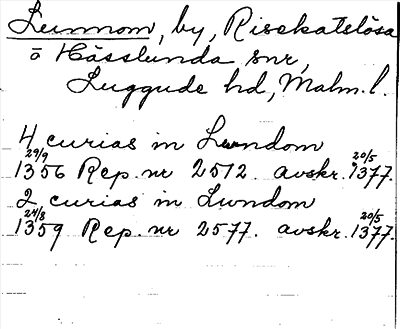 Lunnom, by, Risekatslösa
o Hässlunda snr,
Luggude hd, Malm. l.
4 curias in Lundom
29/9 1356 Rep. nr 2512. avskr. 20/5 1377.
2 curias in Lundom
24/8 1359 Rep. nr 2577. avskr. 20/5 1377.